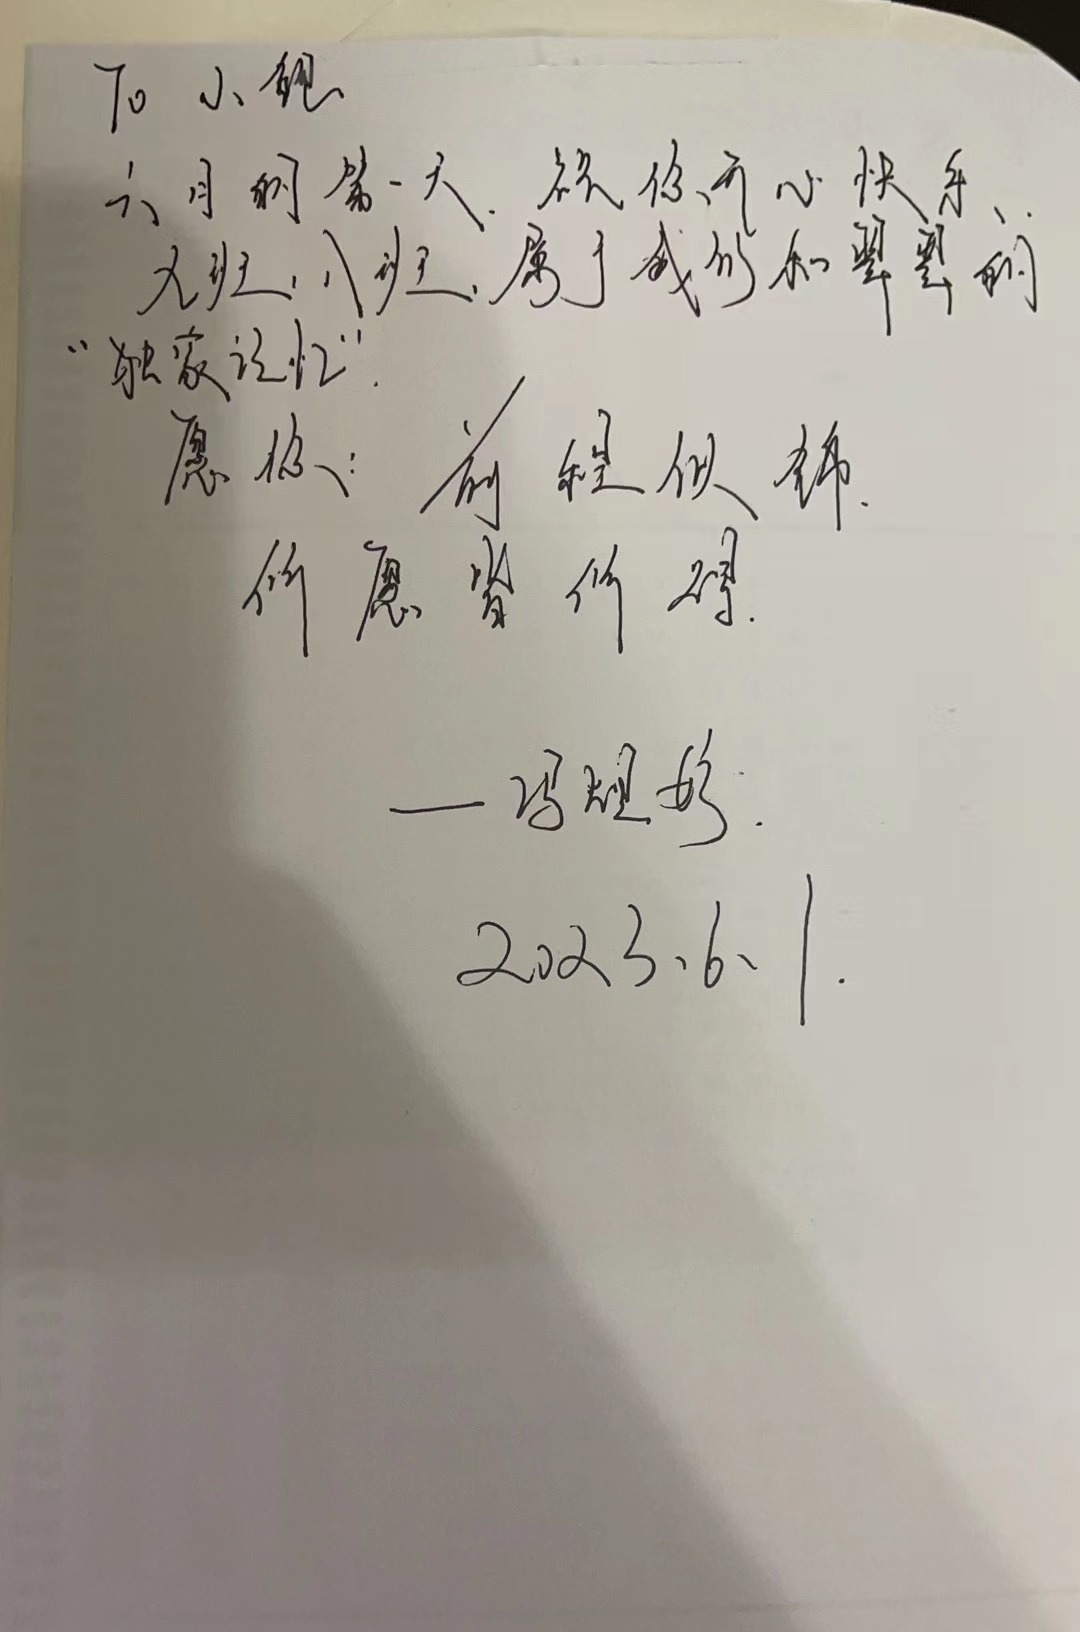 To 小
六月的第一天.祝你开心快乐、
九班,八班,属于我们和翠翠的
“独家记忆”.
愿你:前程似锦.
所愿皆所得.
——冯
2023.6.1.